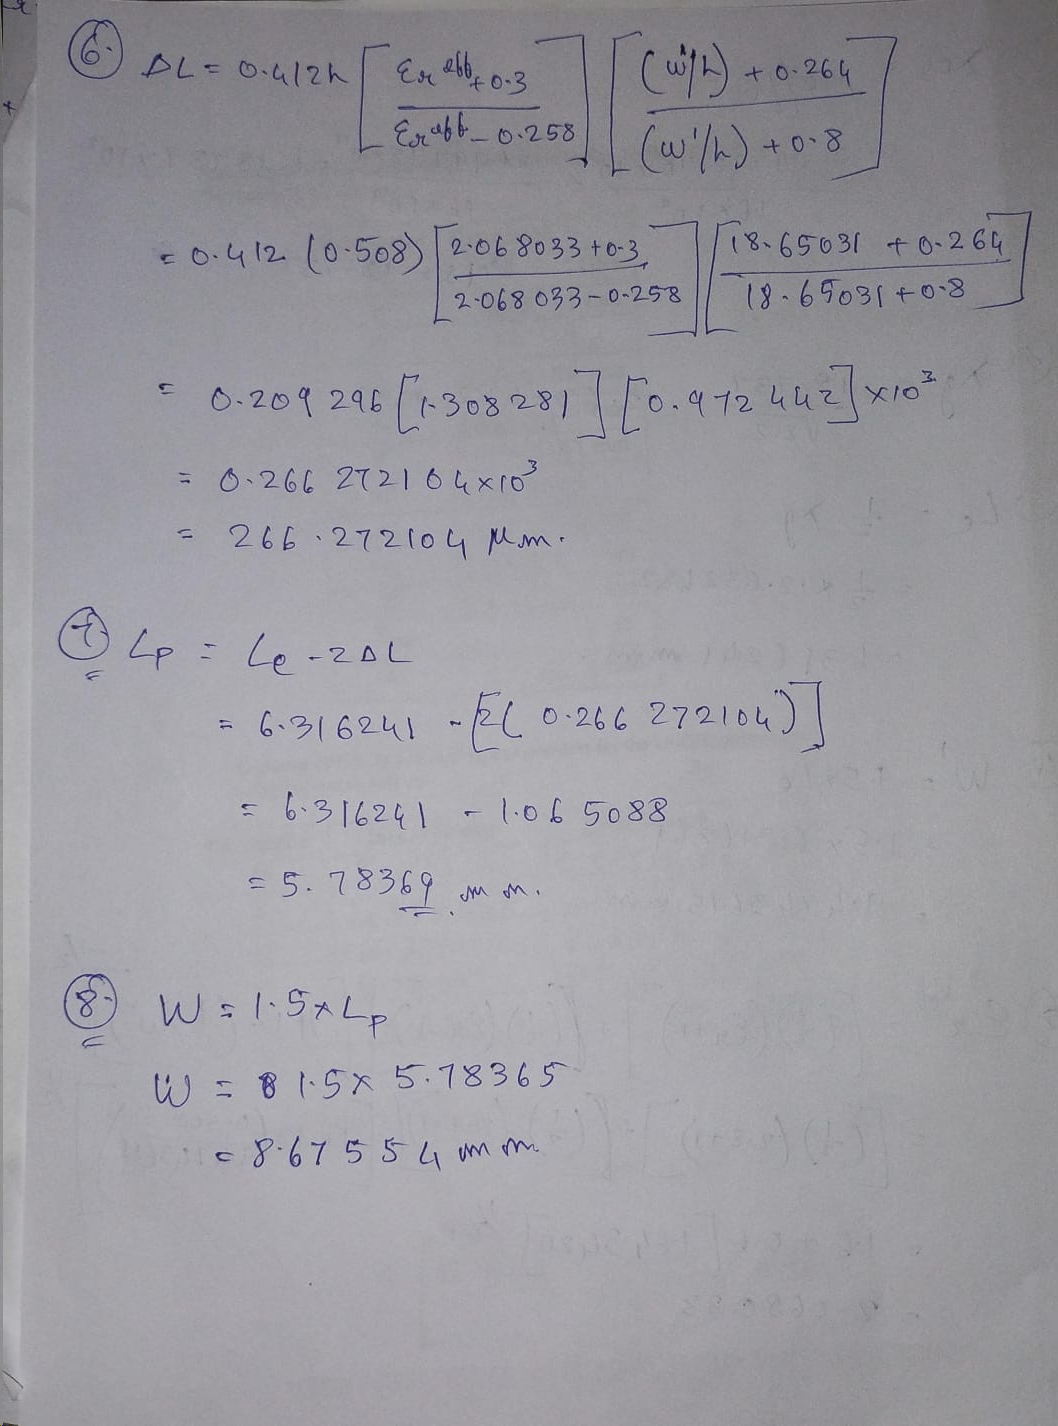 6. ΔL = 0.412h [ (Er eff + 0.3) / (Er eff - 0.258) ] [ ((w'/h) + 0.264) / ((w'/h) + 0.8) ]
= 0.412 (0.508) [ (2.068033 + 0.3) / (2.068033 - 0.258) ] [ (18.65031 + 0.264) / (18.65031 + 0.8) ]
= 0.209 296 [1.308281] [0.972442] x10³
= 0.266 272104 x10³
= 266.272104 μm.
7. Lp = Le - 2ΔL
= 6.316241 - [2( 0.266 272104 )]
= 6.316241 - 1.065088
= 5.78369 mm.
8. W = 1.5 x Lp
W = 1.5 x 5.78365
= 8.67554 mm